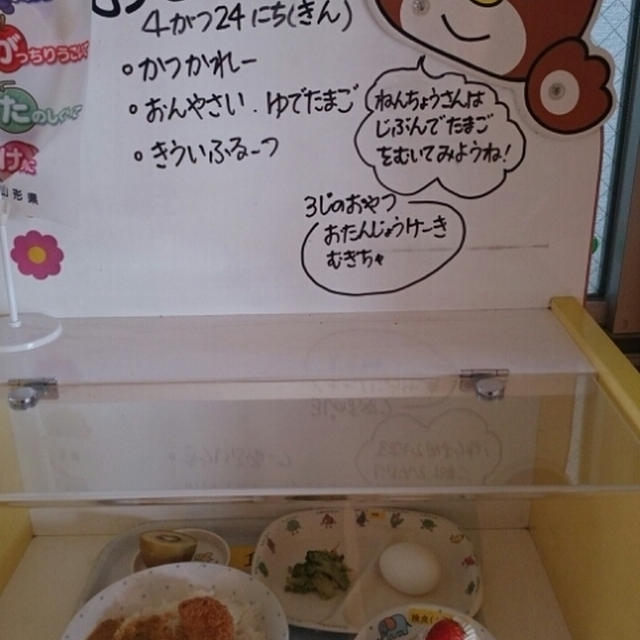 4がつ24にち(きん)
・かつかれー
・おんやさい.ゆでたまご
・きういふるーつ
ねんちょうさんは
じぶんでたまご
をむいてみようね!
3じのおやつ
おたんじょうけーき
むぎちゃ
がっちりうごく
たのしく
形県